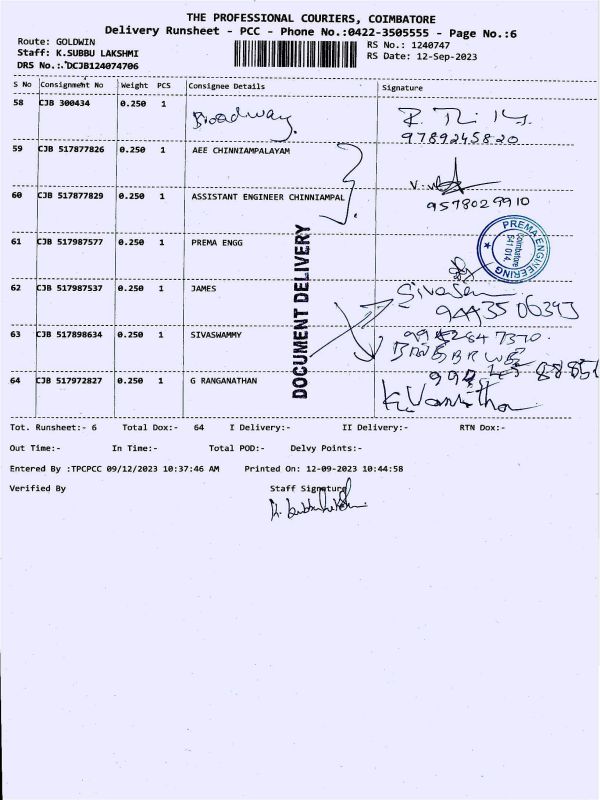 THE PROFESSIONAL COURIERS, COIMBATORE
Delivery Runsheet - PCC - Phone No.:0422-3505555 - Page No.:6
Route: GOLDWIN
Staff: K.SUBBU LAKSHMI
DRS No.: DCJB124074706
RS No.: 1240747
RS Date: 12-Sep-2023
S No Consignment No Weight PCS Consignee Details Signature
58 CJB 300434 0.250 1 Broadway.
9789245820
59 CJB 517877826 0.250 1 AEE CHINNIAMPALAYAM
60 CJB 517877829 0.250 1 ASSISTANT ENGINEER CHINNIAMPAL
9578029910
61 CJB 517987577 0.250 1 PREMA ENGG
PREMA ENGINEERING
Coimbatore
641 014.
62 CJB 517987537 0.250 1 JAMES
9443506343
63 CJB 517898634 0.250 1 SIVASWAMMY
64 CJB 517972827 0.250 1 G RANGANATHAN
K. Vanitha
DOCUMENT DELIVERY
Tot. Runsheet:- 6 Total Dox:- 64 I Delivery:- II Delivery:- RTN Dox:-
Out Time:- In Time:- Total POD:- Delvy Points:-
Entered By :TPCPCC 09/12/2023 10:37:46 AM Printed On: 12-09-2023 10:44:58
Verified By Staff Signature